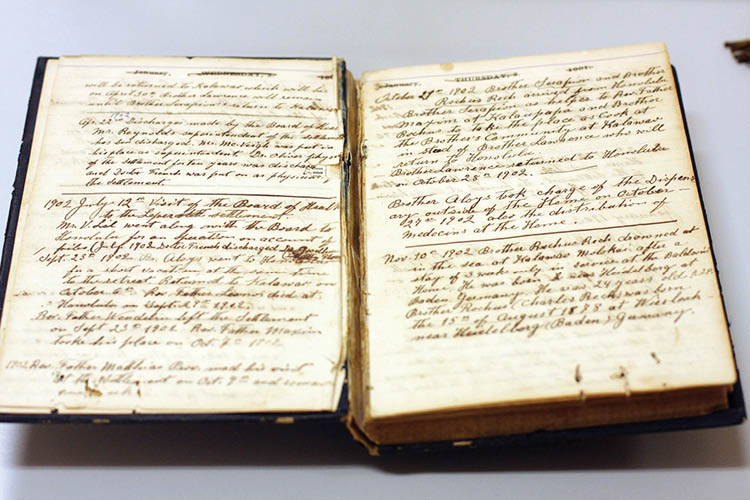 January, WEDNESDAY, 2
will be returned to Kalawao which will be
on April 30th Brother Lawrence will
until Brother Serapion's return to
Apr. 22nd Discharge made by the Board of
Mr. Reynolds superintendent of the
his place as superintendent. Dr. Oliver
of the settlement for ten years was
and Doctor French was put on as
the Settlement.
1902 July 12th Visit of the Board of
to the Leper settlement
went along with the Board to
Honolulu for an operation on account of
1902 Doctor French discharged
Sept. 23d 1902. Bro. Aloys went to
for a short vacation at the same time
to the retreat. Returned to Kalawao on
October
Honolulu on Sept.
Rev. Father Wendelin left the Settlement
on Sept 23d 1902 Rev. Father Maxim
took his place on Oct. 7th 1902
1902 Rev. Father Matthias Prov. made his visit
at the Settlement on Oct. 7th and
January, THURSDAY, 3. 1901.
October 29th 1902 Brother Serapion and Brother
Rochus Roch arrived from Honolulu
Brother Serapion as helper to Rev. Father
Maxim at Kalaupapa and Brother
Rochus to take the place as Cook at
the Brothers Community at Kalawao
in stead of Brother Lawrence who will
return to Honolulu.
Brother Lawrence returned to Honolulu
on October 28th 1902.
Brother Aloys took charge of the Dispens
ary outside of the Home on October
27th 1902 also the distribution of
medecins at the Home.
Nov. 10th 1902 Brother Rochus Roch drowned at
in the sea at Kalawao Molokai after a
stay of 3 weeks only in service at the Baldwin
Home. He was born near Heidelberg in
Baden Germany. He was 24 years old. R.I.P.
Brother Rochus Charles Roch was born
the 15th of August 1878 at Wiesloch
near Heidelberg (Baden) Germany.